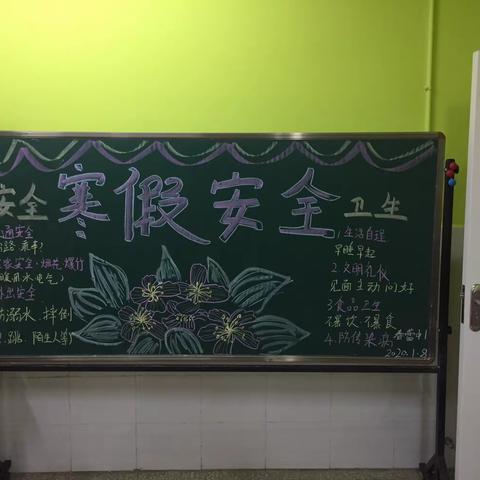 寒假安全
安全
通安全
路 乘车)
家安全·烟花 爆竹
暖 用水 电气)
外出安全
防溺水 摔倒
跳 陌生人等)
卫生
1.生活自理
早睡早起
2.文明礼仪
见面主动问好
3.食品卫生
不暴饮不暴食
4.防传染病
2020.1.8